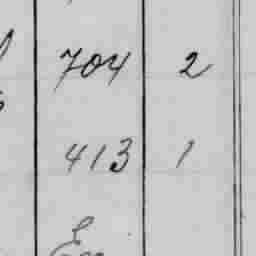 704 2
413 1